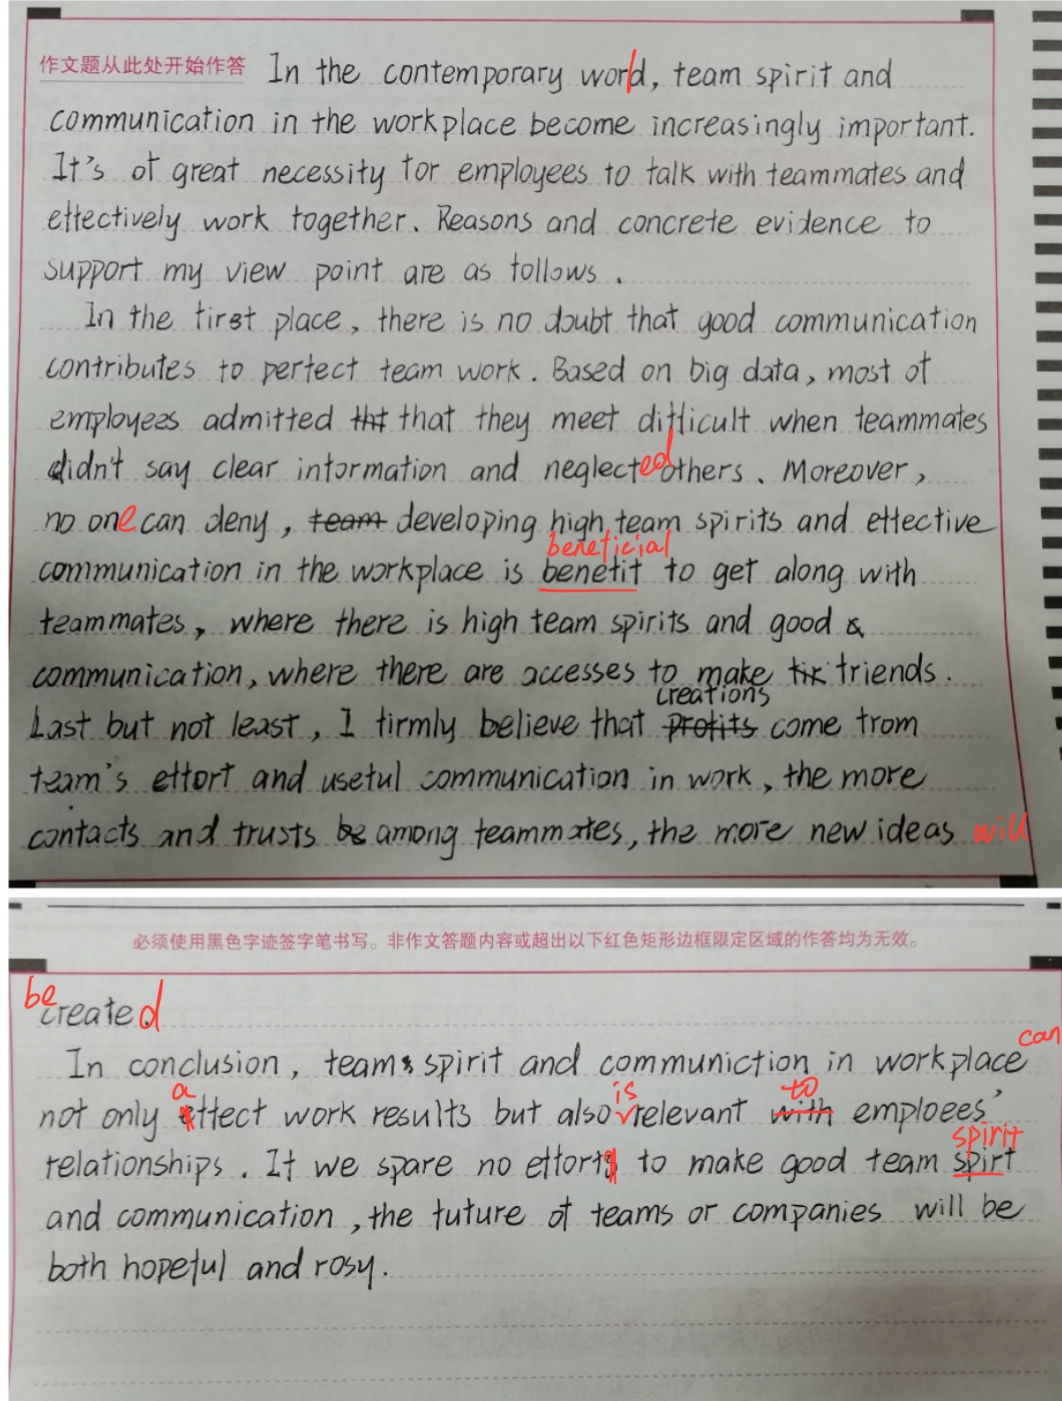 作文题从此处开始作答 In the contemporary world, team spirit and
communication in the workplace become increasingly important.
It's of great necessity for employees to talk with teammates and
effectively work together. Reasons and concrete evidence to
support my view point are as follows.
In the first place, there is no doubt that good communication
contributes to perfect team work. Based on big data, most of
employees admitted tht that they meet difficult when teammates
didn't say clear information and neglected others. Moreover,
no one can deny, team developing high team spirits and effective
beneficial
communication in the workplace is benefit to get along with
teammates, where there is high team spirits and good &
communication, where there are accesses to make fir friends.
creations
Last but not least, I firmly believe that profits come from
team's effort and useful communication in work, the more
contacts and trusts be among teammates, the more new ideas will
必须使用黑色字迹签字笔书写。非作文答题内容或超出以下红色矩形边框限定区域的作答均为无效。
be created
In conclusion, team spirit and communiction in workplace can
a is to
not only effect work results but also relevant with emploees'
spirit
relationships. If we spare no efforts to make good team spirt
and communication, the future of teams or companies will be
both hopeful and rosy.